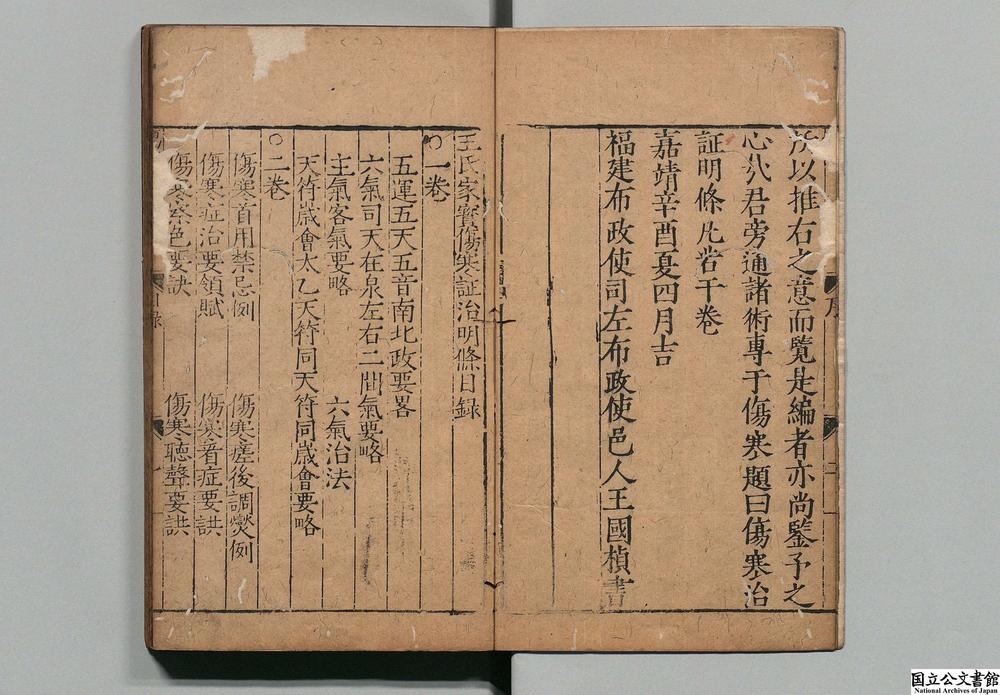 所以推右之意而覽是編者亦尚鑒予之
心八君旁通諸術專于傷寒題曰傷寒治
証明條凡若干卷
嘉靖辛酉夏四月吉
福建布政使司左布政使邑人王國楨書
序
二
王氏家寶傷寒証治明條目錄
○一卷
五運五天五音南北政要畧
六氣司天在泉左右二間氣要略
主氣客氣要略 六氣治法
天符歲會太乙天符同天符同歲會要略
○二卷
傷寒首用禁忌例 傷寒瘥後調燮例
傷寒症治要領賦 傷寒看症要訣
傷寒察色要訣 傷寒聽聲要訣
目錄
一
国立公文書館
National Archives of Japan